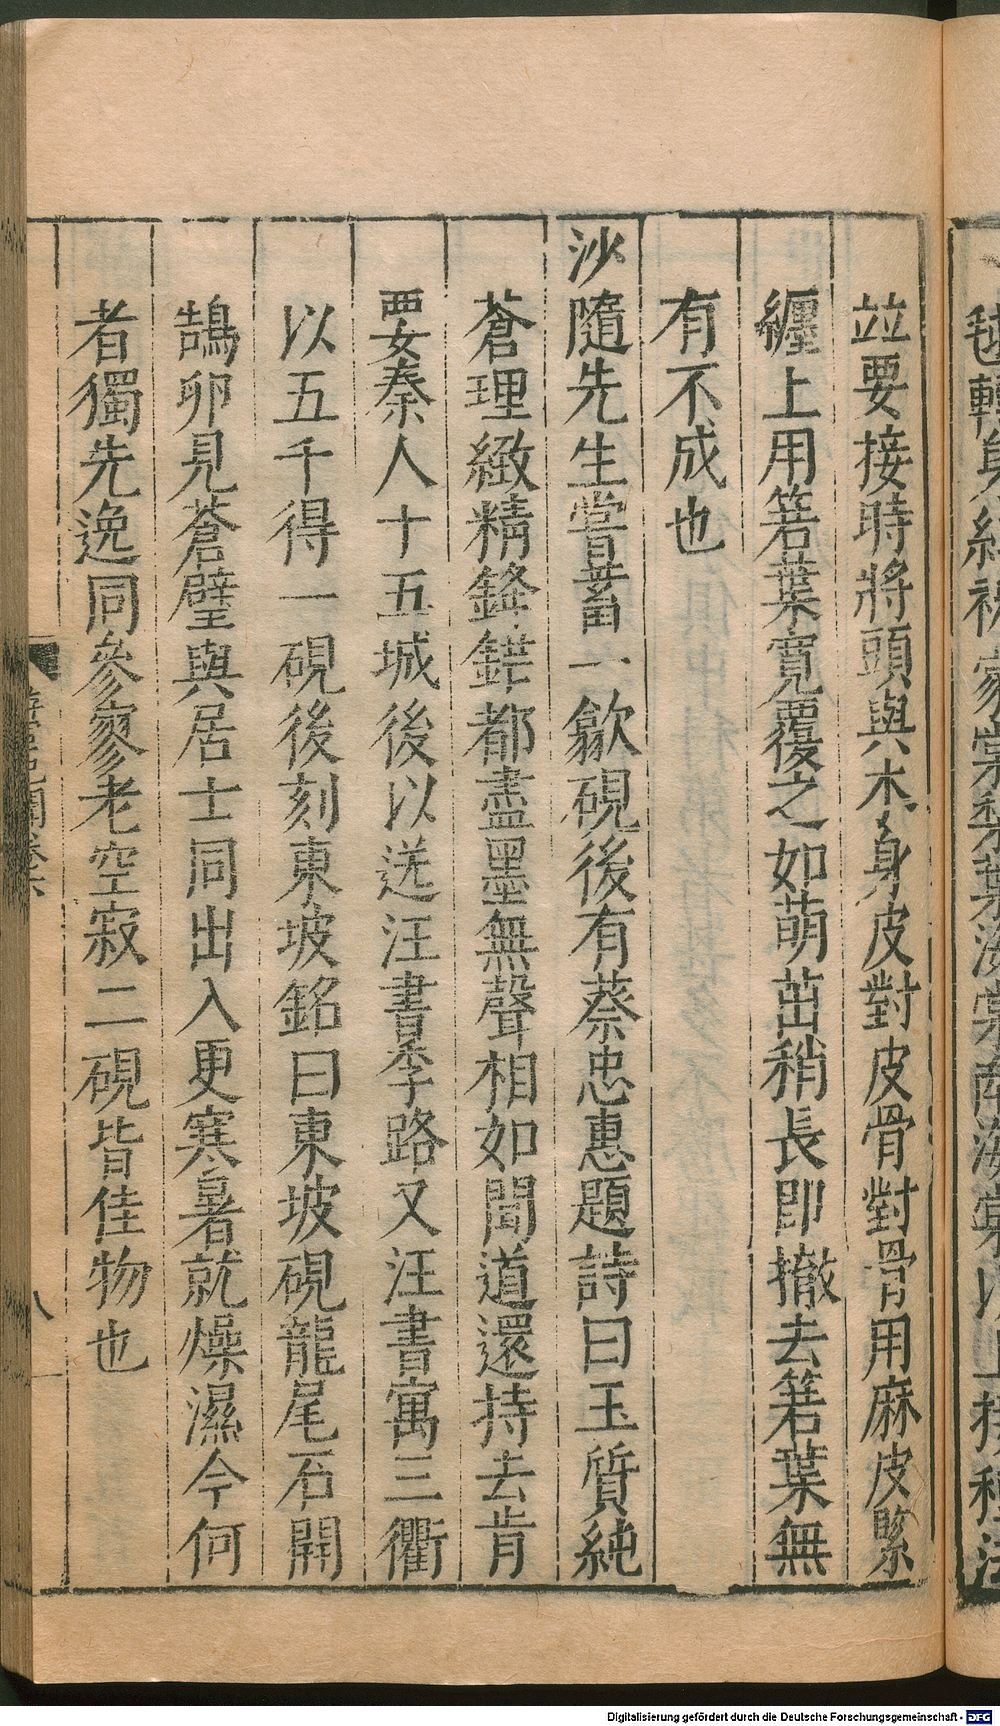 並要接時將頭與木身皮對皮骨對骨用麻皮緊
纏上用箬葉寬覆之如萌茁稍長即撤去箬葉無
有不成也
沙隨先生嘗蓄一歙硯後有蔡忠惠題詩曰玉質純
蒼理緻精鋒鋩都盡墨無聲相如聞道還持去肯
要秦人十五城後以送汪書季路又汪書寓三衢
以五千得一硯後刻東坡銘曰東坡硯龍尾石開
鵠卵見蒼璧與居士同出入更寒暑就燥濕今何
者獨先逸同參寥老空寂二硯皆佳物也
卷六
八
Digitalisierung gefördert durch die Deutsche Forschungsgemeinschaft - DFG